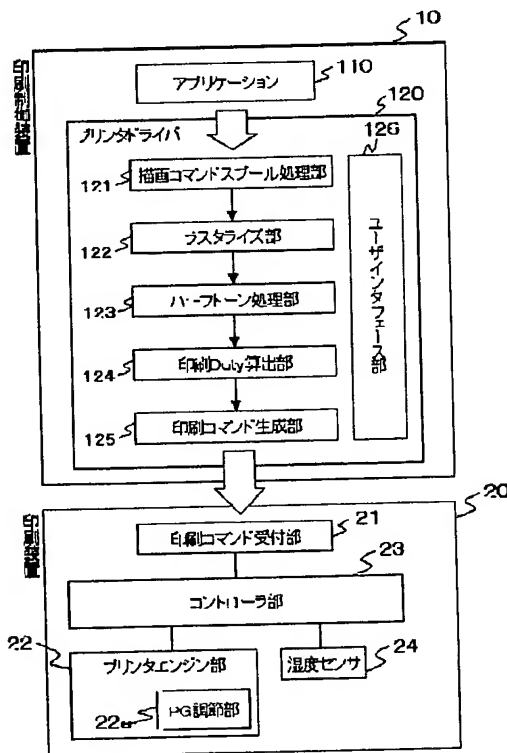 10
印刷制御装置
アプリケーション
110
120
プリンタドライバ
126
描画コマンドスプール処理部
121
ラスタライズ部
122
ハーフトーン処理部
123
印刷Duty算出部
124
印刷コマンド生成部
125
ユーザインタフェース部
20
印刷装置
印刷コマンド受付部
21
23
コントローラ部
22
プリンタエンジン部
24
湿度センサ
PG調節部